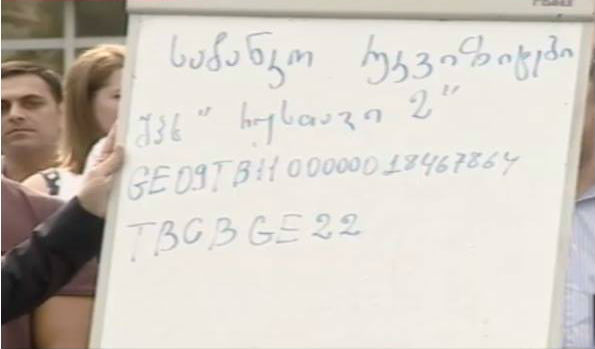 საბანკო რეკვიზიტები
შპს " რუსთავი 2 "
GE09TB1100000018467864
TBCBGE22